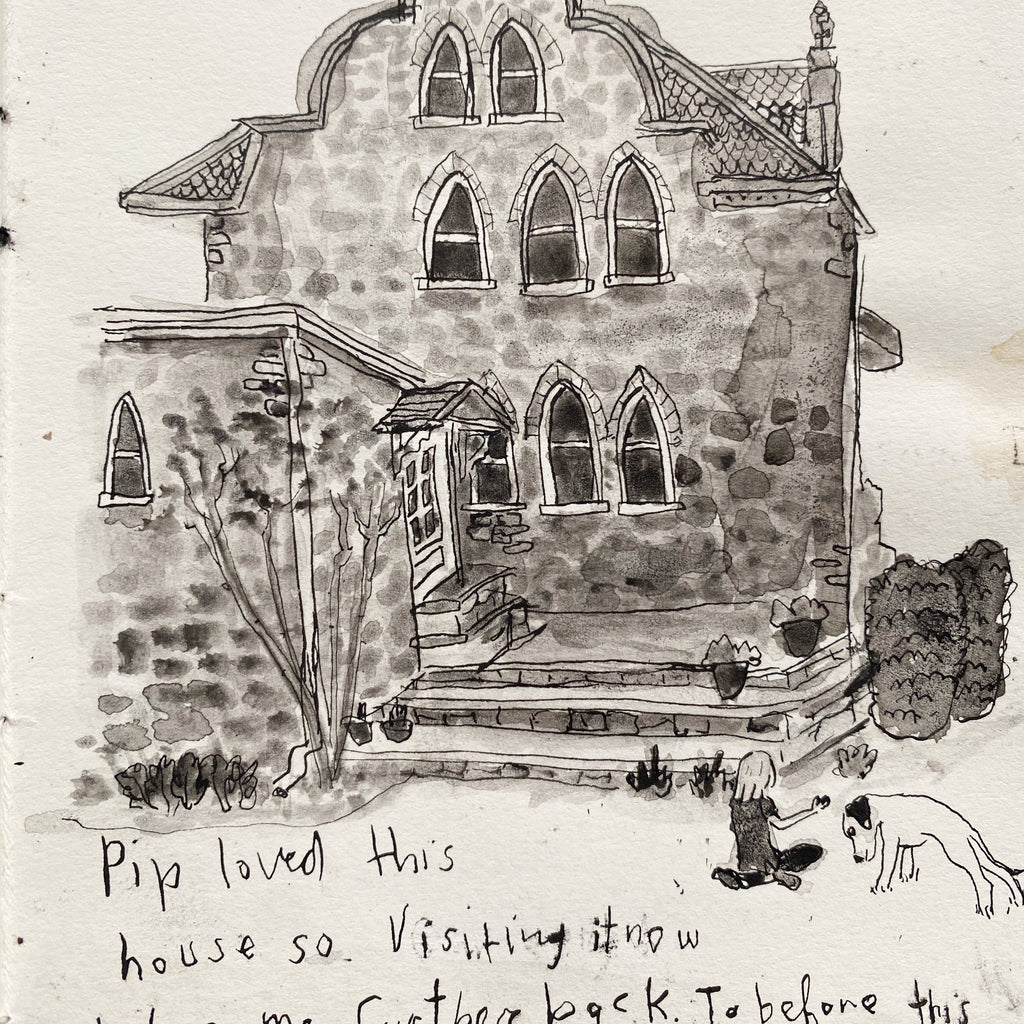 Pip loved this
house so. Visiting it now
me further back. To before this